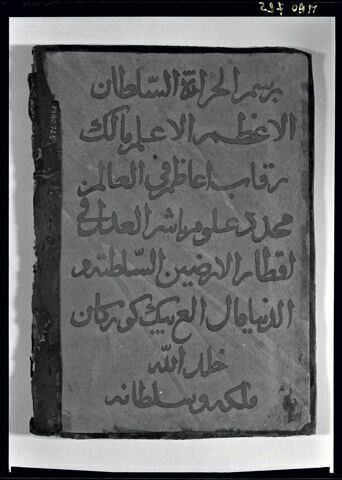 MAO 725
MAO 725
برسم الخزانة السلطان
الاعظم الاعلم مالك
رقاب اعاظم في العالم
مجدد علوم ناشر العدل في
اقطار الارضين السلطنة و
الدنيا الغ بيك كوركان
خلد الله
ملكه و سلطانه